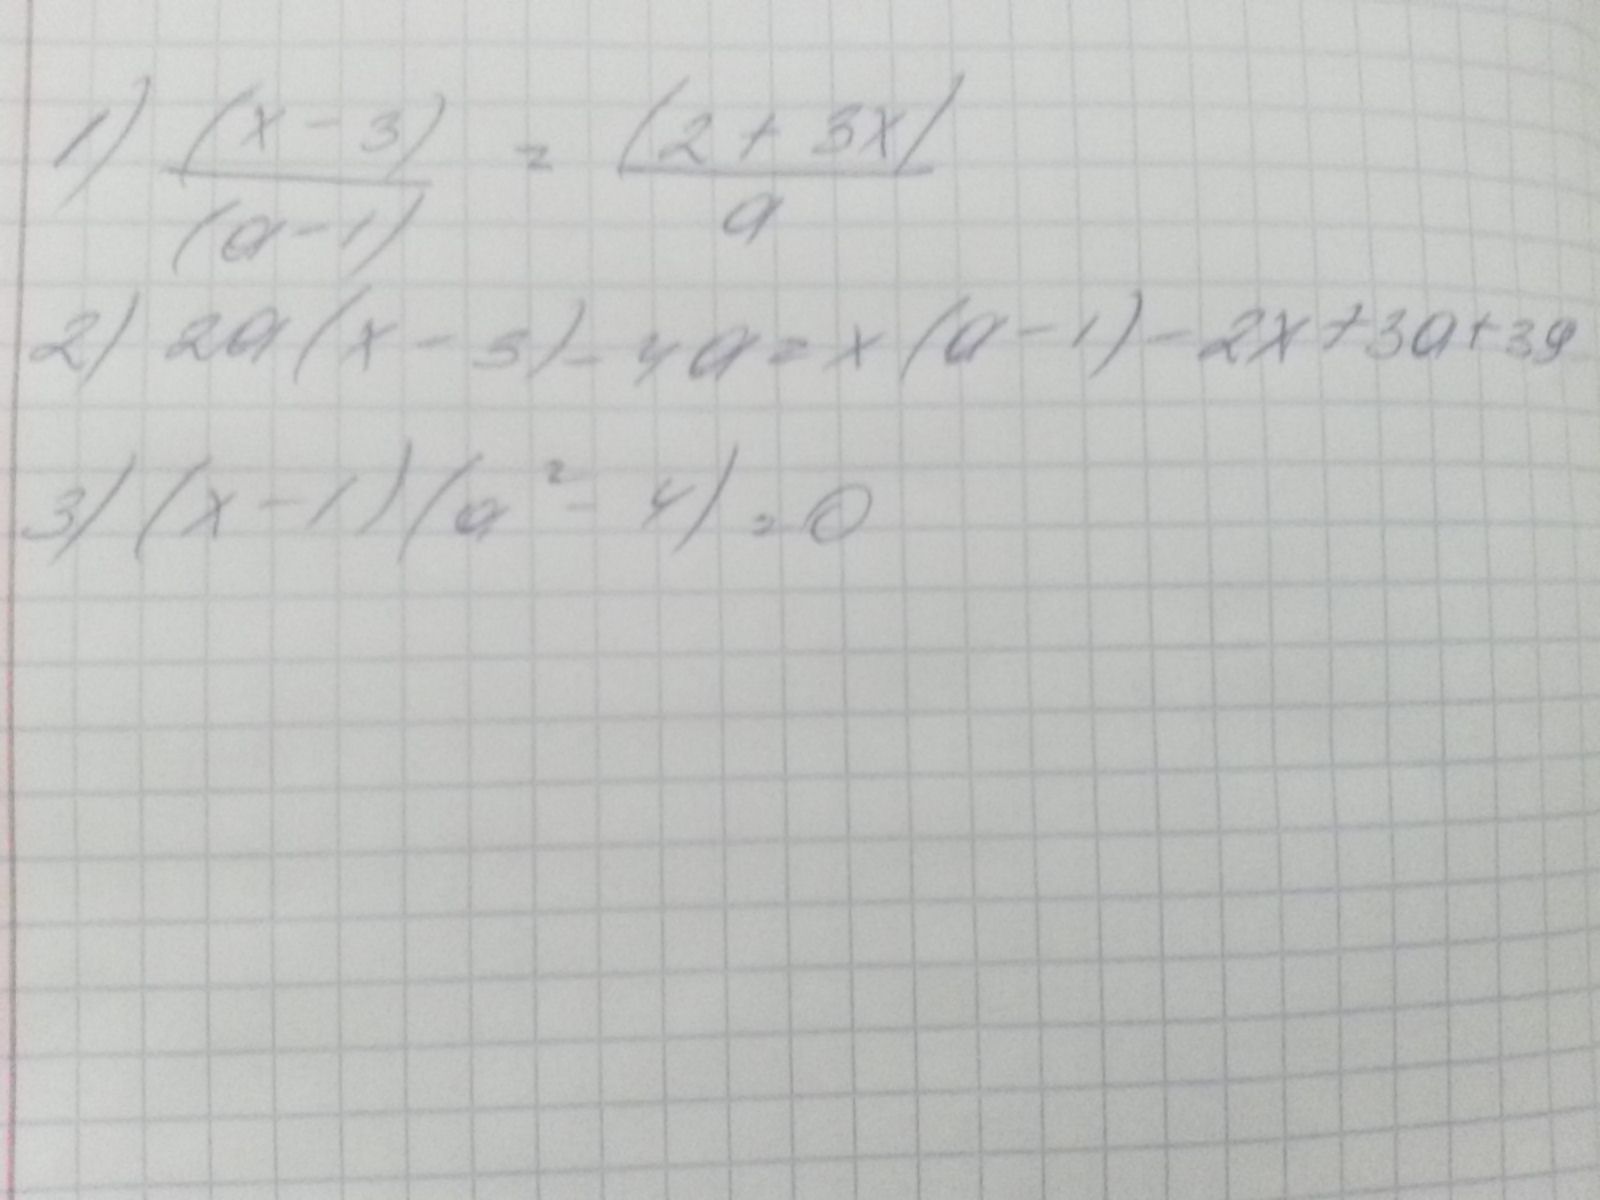 1) (x - 3) / (a - 1) = (2 + 3x) / a
2) 2a(x - 3) - 4a = x(a - 1) - 2x + 3a + 39
3) (x - 1)(a² - 4) = 0